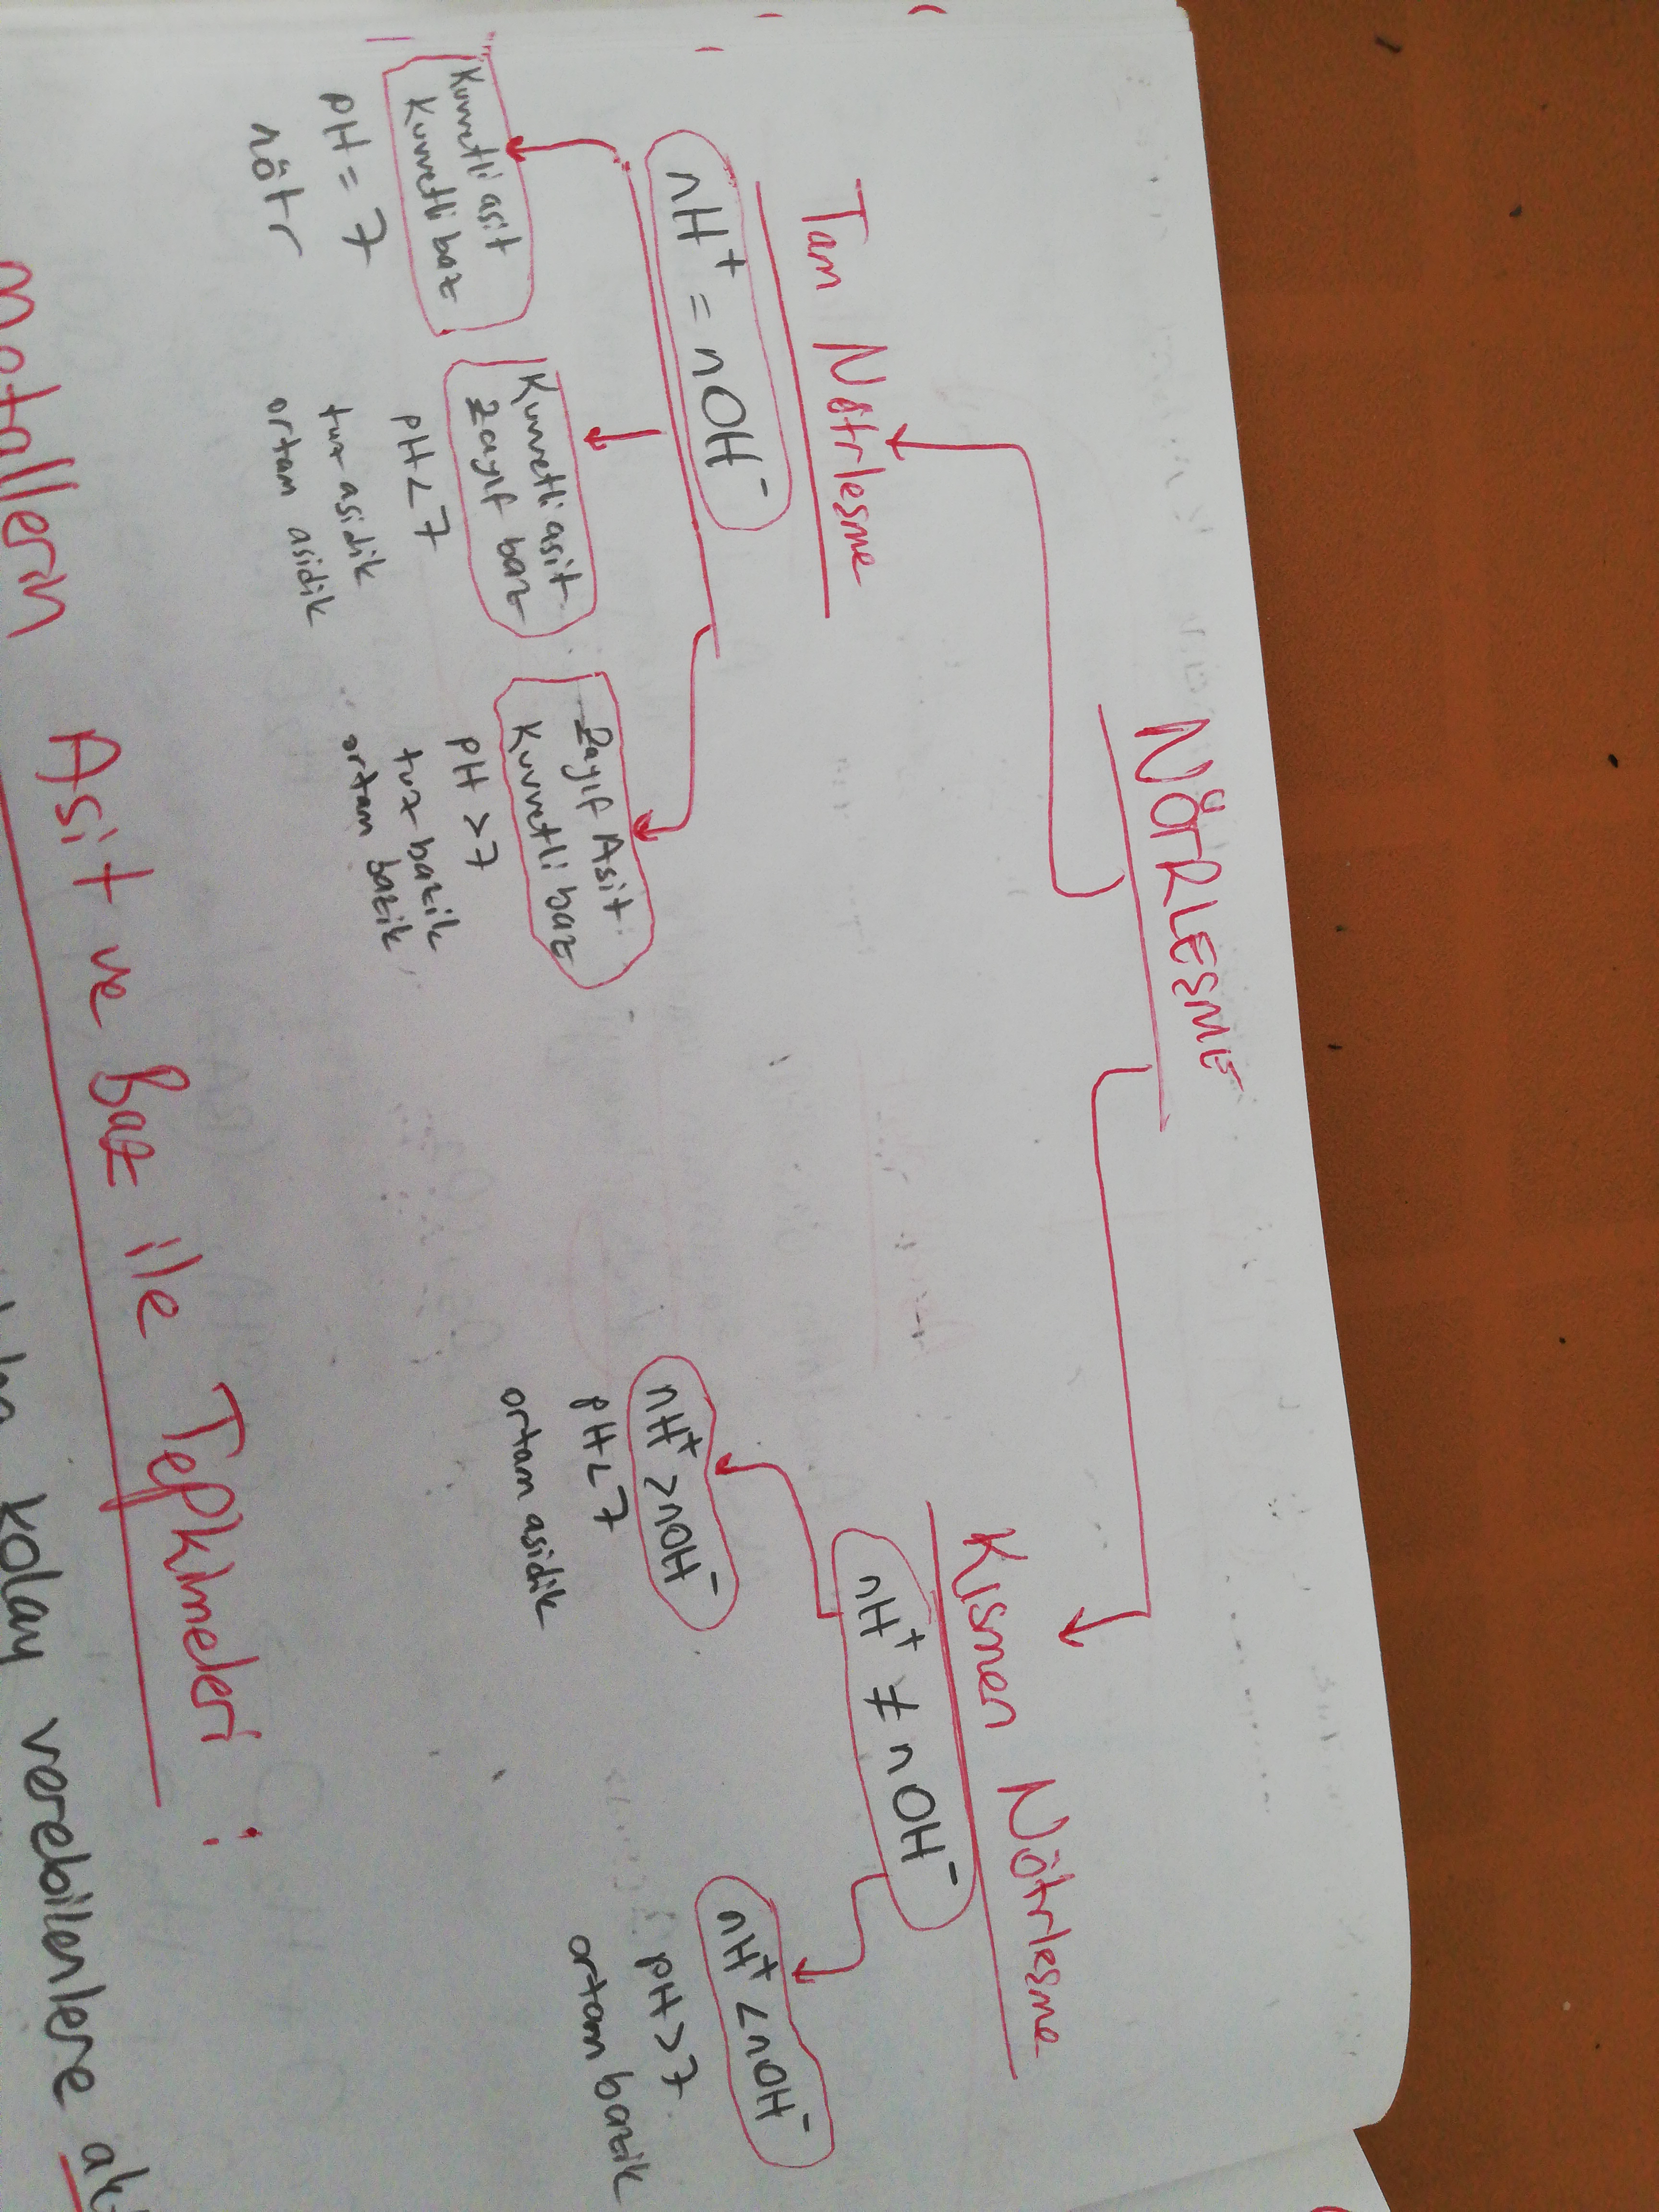 NÖTRLESME
Tam Nötrlesme
nH⁺ = nOH⁻
Kuvvetli asit
Kuvvetli baz
pH = 7
nötr
Kuvvetli asit
Zayıf baz
pH < 7
tuz asidik
ortam asidik
Zayıf Asit
Kuvvetli baz
pH > 7
tuz bazik
ortam bazik
Kısmen Nötrlesme
nH⁺ ≠ nOH⁻
nH⁺ > nOH⁻
pH < 7
ortam asidik
nH⁺ < nOH⁻
pH > 7
ortam bazik
Metallerin Asit ve Baz ile Tepkimeleri :
kolay verebilenlere